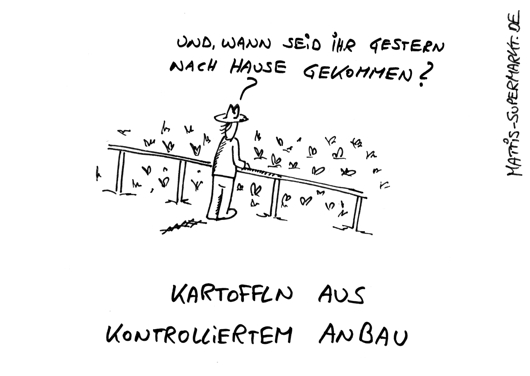 UND, WANN SEID IHR GESTERN
NACH HAUSE GEKOMMEN?
MATTIS-SUPERMARKT.DE
KARTOFFLN AUS
KONTROLLIERTEM ANBAU